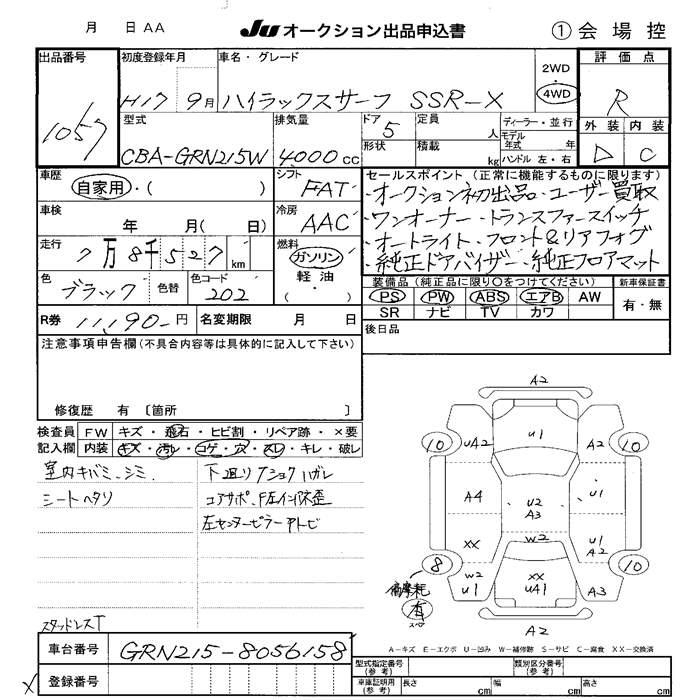 月 日 AA JU オークション出品申込書 ① 会場控
出品番号 初度登録年月 車名・グレード 2WD 評価点
1057 H17 9月 ハイラックスサーフ SSR-X 4WD R
型式 排気量 ドア 5 定員 人 ディーラー・並行 外装 内装
モデル年式 年式
CBA-GRN215W 4000cc 形状 積載 kg ハンドル 左・右 D C
車歴 シフト セールスポイント(正常に機能するものに限ります)
自家用・( ) FAT ・オークション初出品・ユーザー買取
車検 冷房 ・ワンオーナー・トランスファースイッチ
年 月( 日) AAC ・オートライト・フロント&リアフォグ
走行 7万8千527km 燃料 ガソリン ・純正ドアバイザー・純正フロアマット
軽油
色 ブラック 色替 色コード 202 ( ・ ) 装備品(純正品に限り○をつけてください) 新車保証書
PS PW ABS エアB AW 有・無
SR ナビ TV カワ
R券 11,190-円 名変期限 月 日 後日品
注意事項申告欄(不具合内容等は具体的に記入して下さい)
修復歴 有 〔箇所 〕
検査員 FW キズ・飛石・ヒビ割・リペア跡・×要
記入欄 内装 キズ・汚レ・コゲ・穴・スレ・キレ・破レ
室内キバミ、シミ 下廻リ サショクハガレ
シートヘタリ コアサポ、F左インパネ歪
左センターピラーアトビ
スタッドレスT
A2
10 UA2 U1 10
A4 U2 A3 U1
XX W2 U1 A2
8 W2 U1 XX UA1 A3 10
偏摩耗 有 スペ
A2
A-キズ E-エクボ U-凹み W-補修跡 S-サビ C-腐食 XX-交換済
車台番号 GRN215-8056158
登録番号
型式指定番号(参考) 類別区分番号(参考)
車庫証明用(参考) 長さ cm 幅 cm 高さ cm